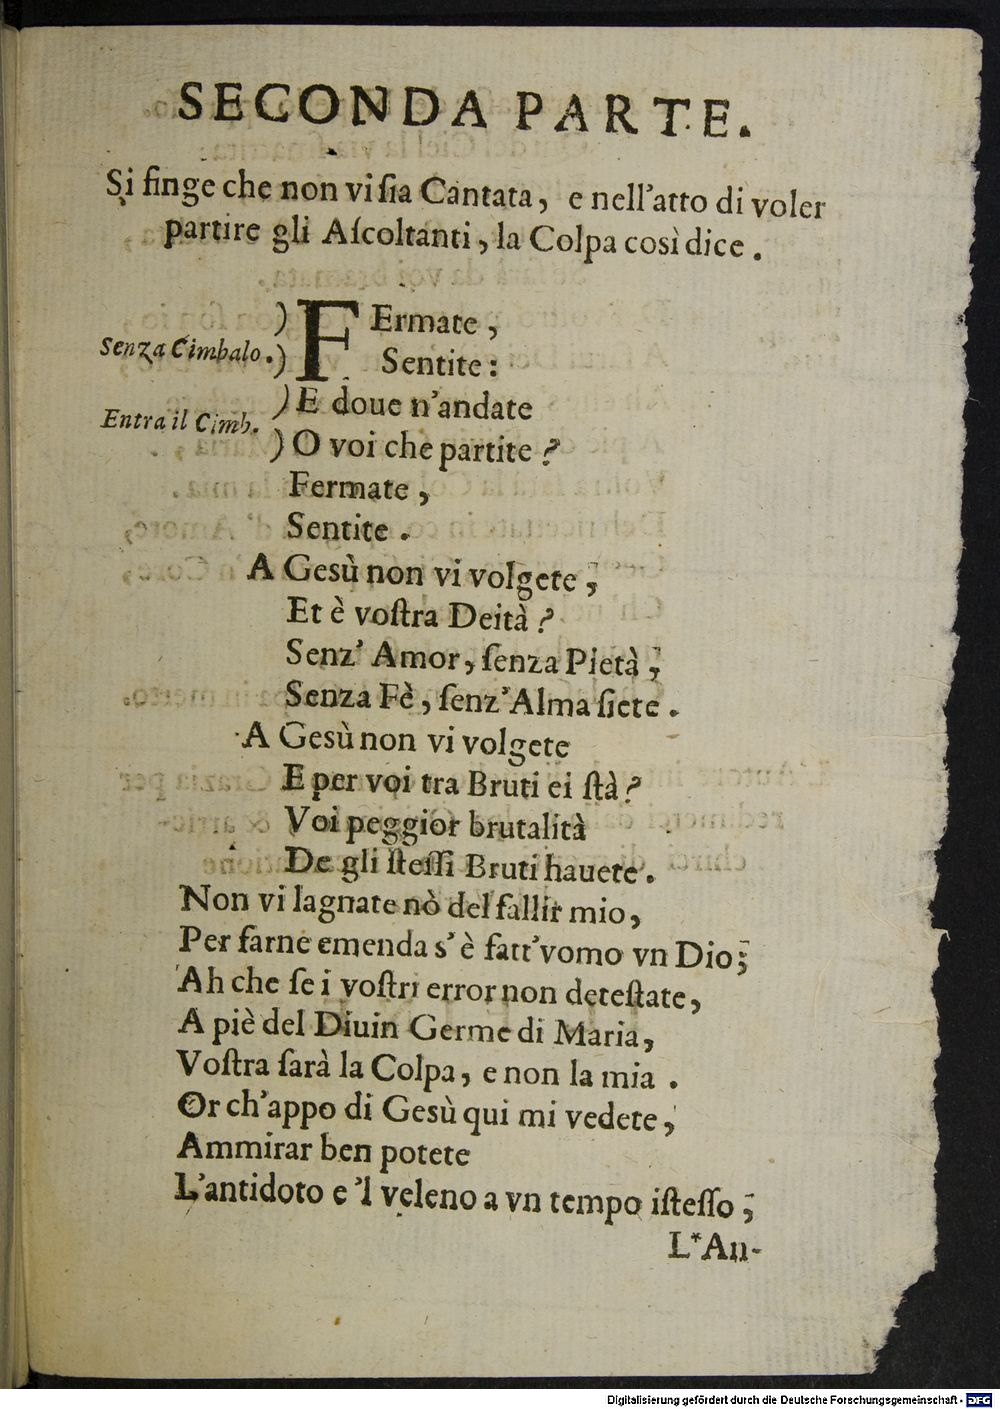 SECONDA PARTE.
Si finge che non vi ſia Cantata, e nell'atto di voler
partire gli Aſcoltanti, la Colpa così dice.
) FErmate,
Senza Cimbalo. ) Sentite:
) E doue n'andate
Entra il Cimb. ) O voi che partite?
Fermate,
Sentite.
A Gesù non vi volgete,
Et è voſtra Deità?
Senz' Amor, ſenza Pietà;
Senza Fè, ſenz'Alma ſiete.
A Gesù non vi volgete
E per voi tra Bruti ei ſtà?
Voi peggior brutalità
De gli ſteſſi Bruti hauete.
Non vi lagnate nò del fallir mio,
Per farne emenda s'è fatt'vomo vn Dio;
Ah che ſe i voſtri error non deteſtate,
A piè del Diuin Germe di Maria,
Voſtra ſarà la Colpa, e non la mia.
Or ch'appo di Gesù qui mi vedete,
Ammirar ben potete
L'antidoto e 'l veleno a vn tempo iſteſſo;
L*An-
Digitalisierung gefördert durch die Deutsche Forschungsgemeinschaft - DFG